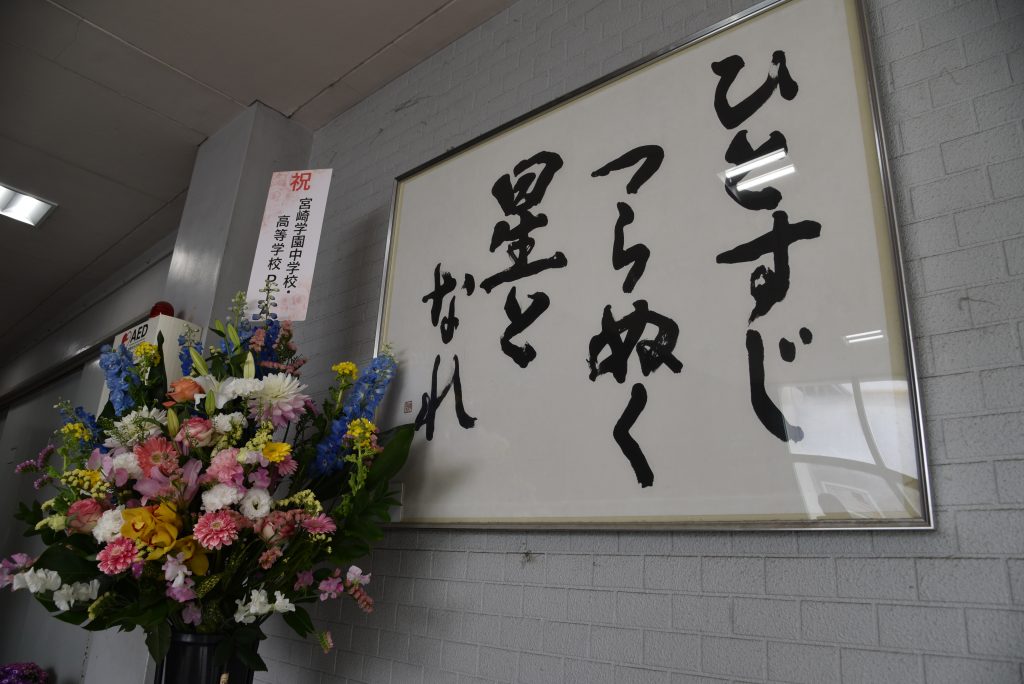 ひとすじ
つらぬく
星と
なれ
祝
宮崎学園中学校・
高等学校P
AED